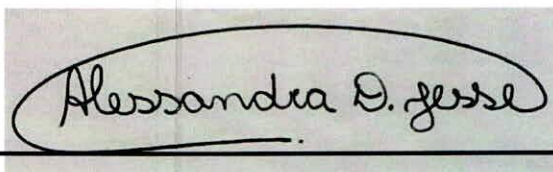 Alessandra D. Jesse